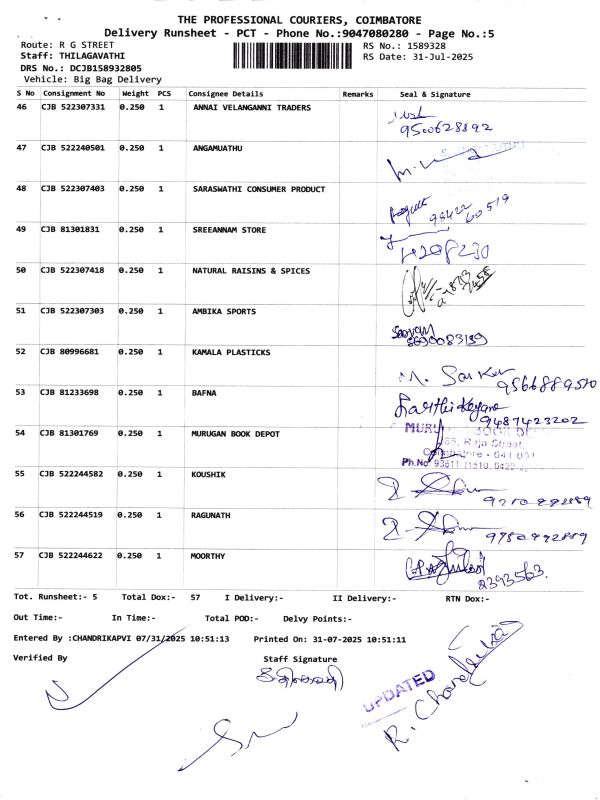 THE PROFESSIONAL COURIERS, COIMBATORE
Delivery Runsheet - PCT - Phone No.:9047080280 - Page No.:5
Route: R G STREET
RS No.: 1589328
Staff: THILAGAVATHI
RS Date: 31-Jul-2025
DRS No.: DCJB158932805
Vehicle: Big Bag Delivery
S No Consignment No Weight PCS Consignee Details Remarks Seal & Signature
46 CJB 522307331 0.250 1 ANNAI VELANGANNI TRADERS
9500628892
47 CJB 522240501 0.250 1 ANGAMUATHU
48 CJB 522307403 0.250 1 SARASWATHI CONSUMER PRODUCT
98422 60519
49 CJB 81301831 0.250 1 SREEANNAM STORE
50 CJB 522307418 0.250 1 NATURAL RAISINS & SPICES
51 CJB 522307303 0.250 1 AMBIKA SPORTS
52 CJB 80996681 0.250 1 KAMALA PLASTICKS
M. Sanker 9566889510
53 CJB 81233698 0.250 1 BAFNA
Karthikeyane
9487423202
54 CJB 81301769 0.250 1 MURUGAN BOOK DEPOT
Raja Street,
Coimbatore - 641 001
Ph.No
55 CJB 522244582 0.250 1 KOUSHIK
56 CJB 522244519 0.250 1 RAGUNATH
57 CJB 522244622 0.250 1 MOORTHY
2393563.
Tot. Runsheet:- 5 Total Dox:- 57 I Delivery:- II Delivery:- RTN Dox:-
Out Time:- In Time:- Total POD:- Delvy Points:-
Entered By :CHANDRIKAPVI 07/31/2025 10:51:13 Printed On: 31-07-2025 10:51:11
Verified By Staff Signature
UPDATED